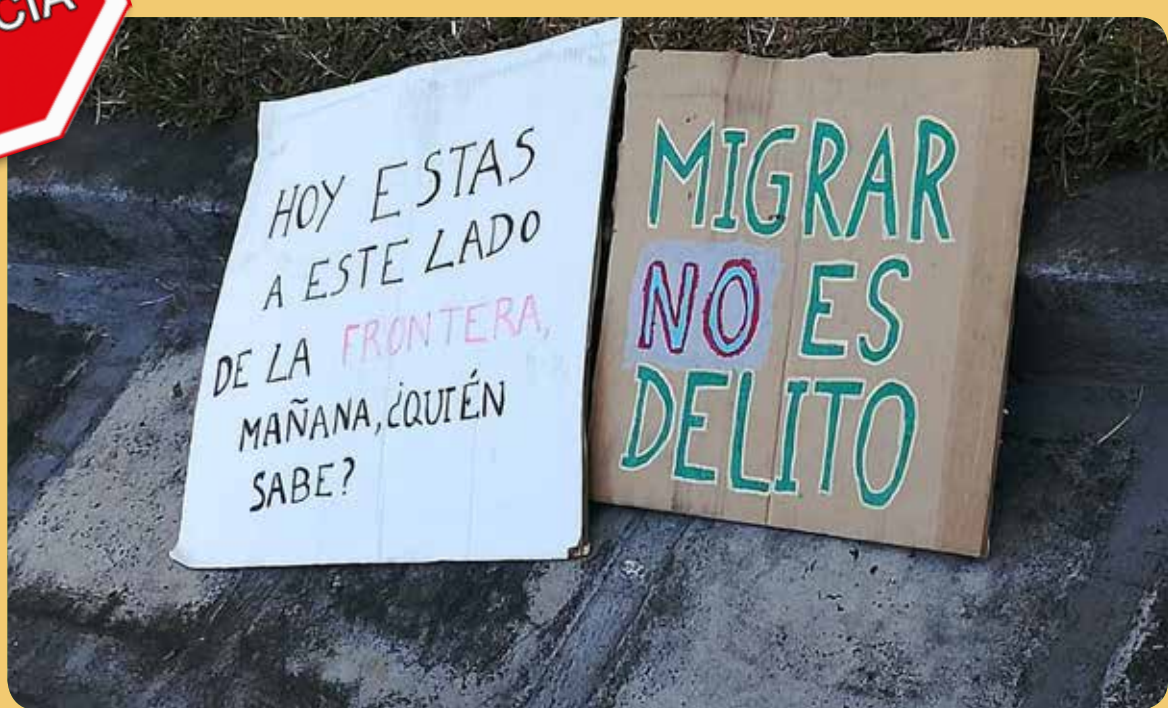 HOY ESTAS
A ESTE LADO
DE LA FRONTERA,
MAÑANA, ¿QUIÉN
SABE?
MIGRAR
NO ES
DELITO